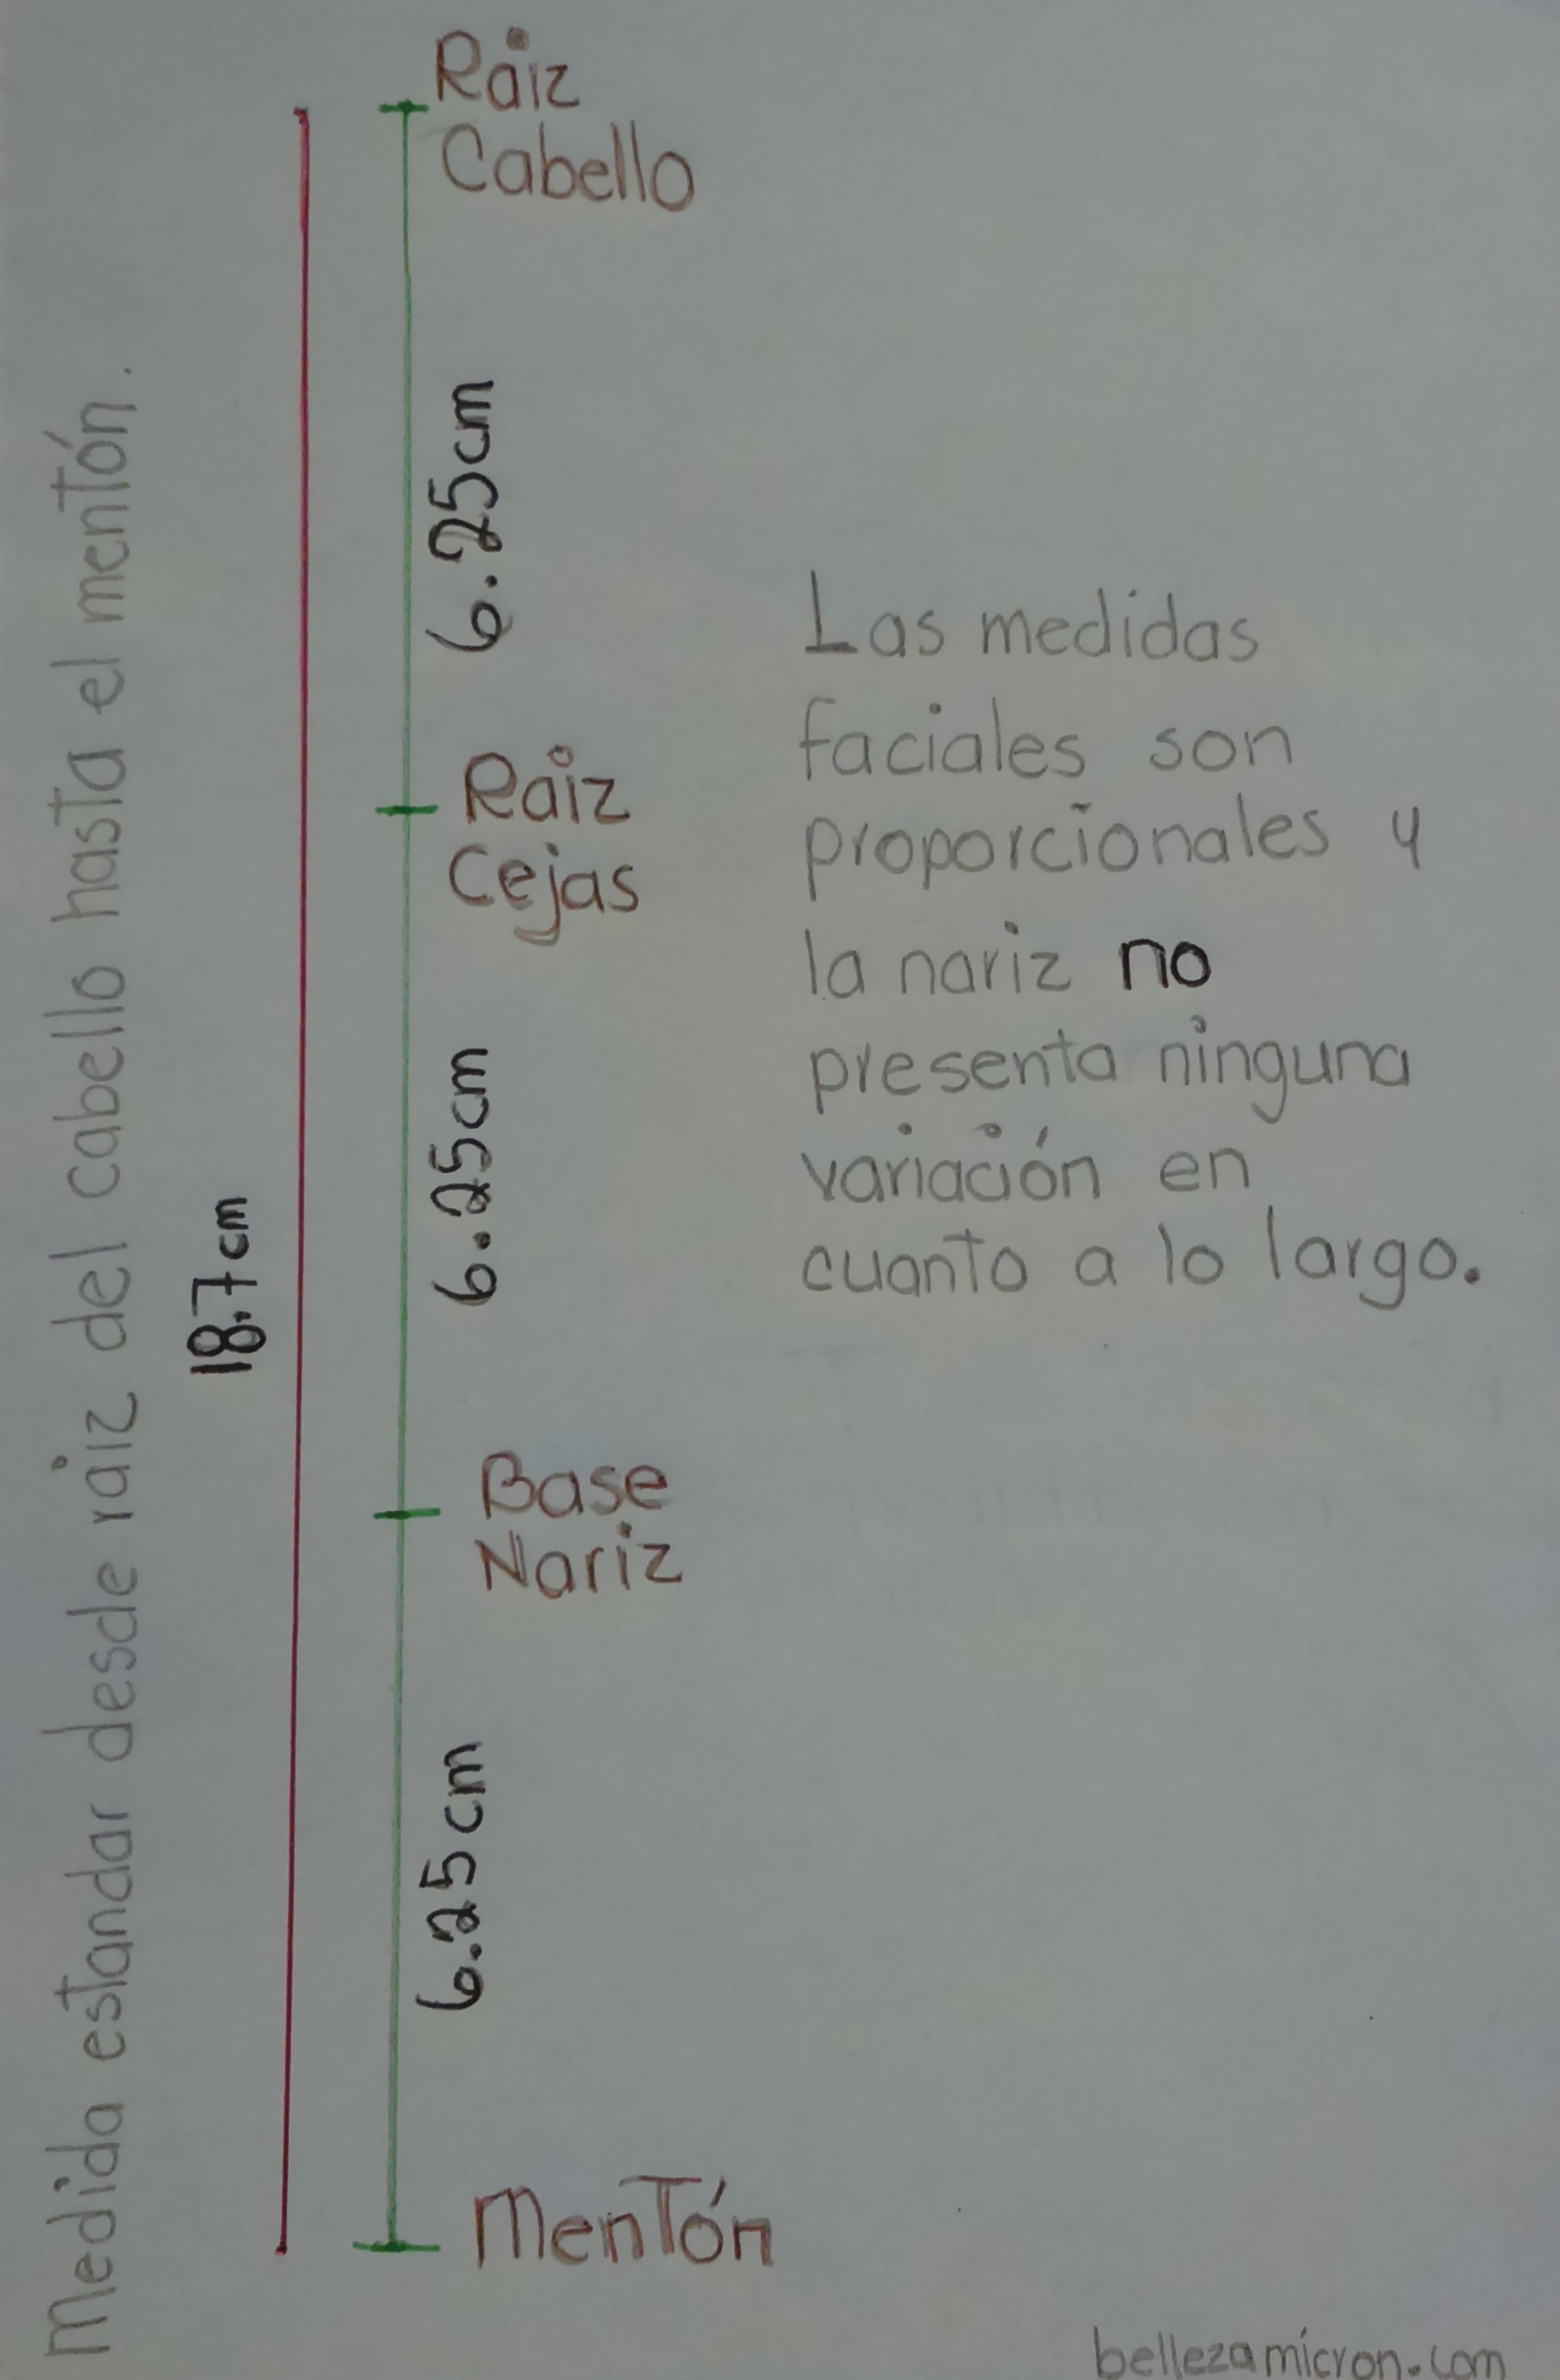 Medida estandar desde raiz del cabello hasta el mentón.
18.7 cm
Raiz
Cabello
6.25cm
Raiz
Cejas
6.25cm
Base
Nariz
6.25cm
Mentón
Las medidas
faciales son
proporcionales y
la nariz no
presenta ninguna
variación en
cuanto a lo largo.
bellezamicron.com